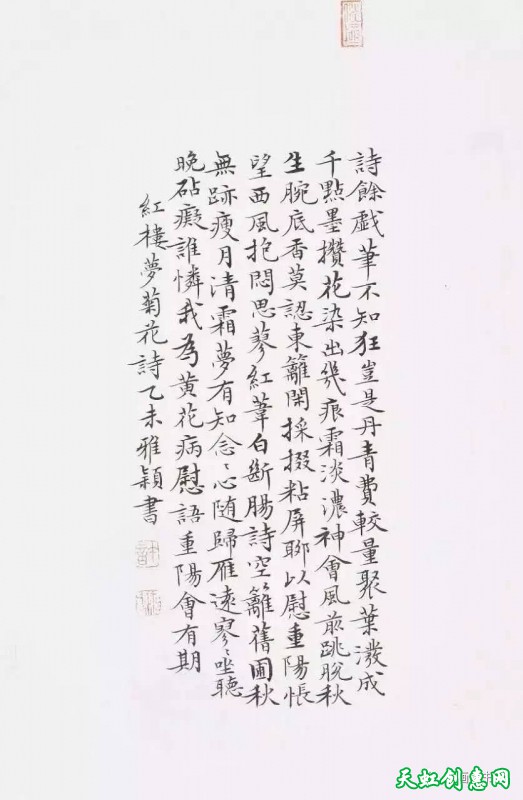 詩餘戯筆不知狂豈是丹青費較量聚葉潑成
千點墨攢花染出幾痕霜淡濃神會風前跳脫秋
生腕底香莫認東籬閑採掇粘屏聊以慰重陽悵
望西風抱悶思蓼紅葦白斷腸詩空籬舊圃秋
無跡瘦月清霜夢有知念〻心隨歸雁遠寥〻坐聽
晚砧癡誰憐我為黄花病慰語重陽會有期
紅樓夢菊花詩乙未雅穎書
天虹创意网